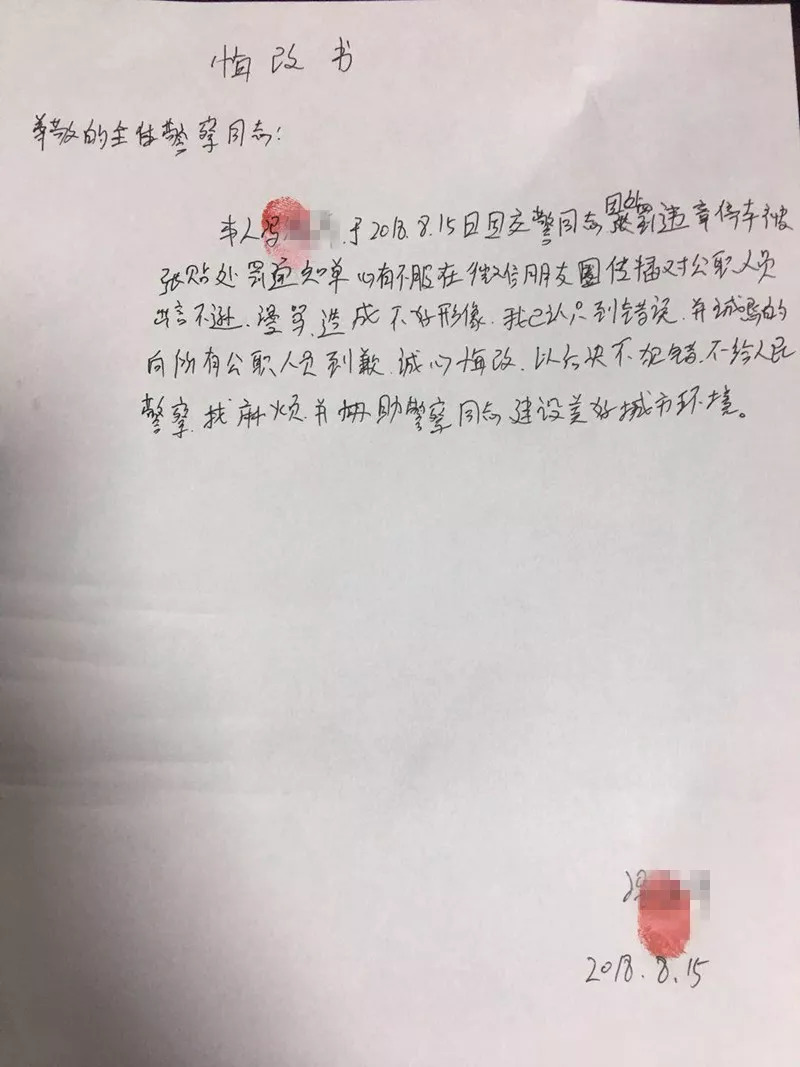 悔改书
尊敬的全体警察同志:
本人冯 于2018.8.15日因交警同志因处罚违章停车被
张贴处罚通知单心有不服在微信朋友圈传播对公职人员
出言不逊.谩骂.造成不好形像.我已认只到错误.并诚恳的
向所有公职人员到歉.诚心悔改.以后决不犯错.不给人民
警察.找麻烦.并帮助警察同志建设美好城市环境。
冯
2018.8.15